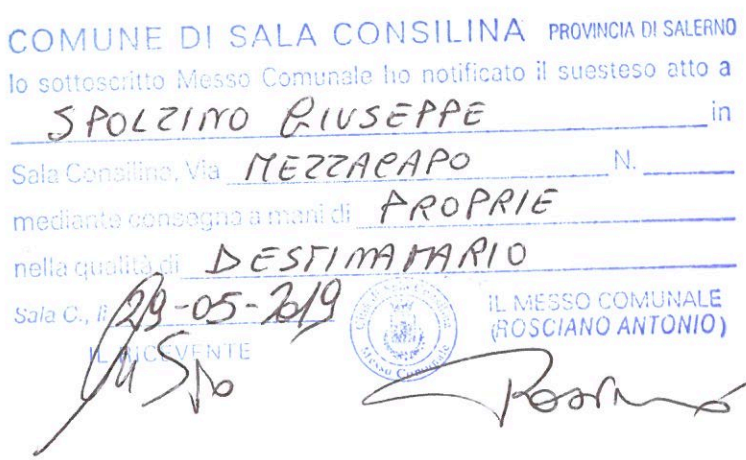 COMUNE DI SALA CONSILINA PROVINCIA DI SALERNO
Io sottoscritto Messo Comunale ho notificato il suesteso atto a
SPOLZINO GIUSEPPE in
Sala Consilina, Via MEZZACAPO N.
mediante consegna a mani di PROPRIE
nella qualità di DESTINATARIO
Sala C., lì 29-05-2019
IL RICEVENTE
IL MESSO COMUNALE
(ROSCIANO ANTONIO)
Messo Comunale